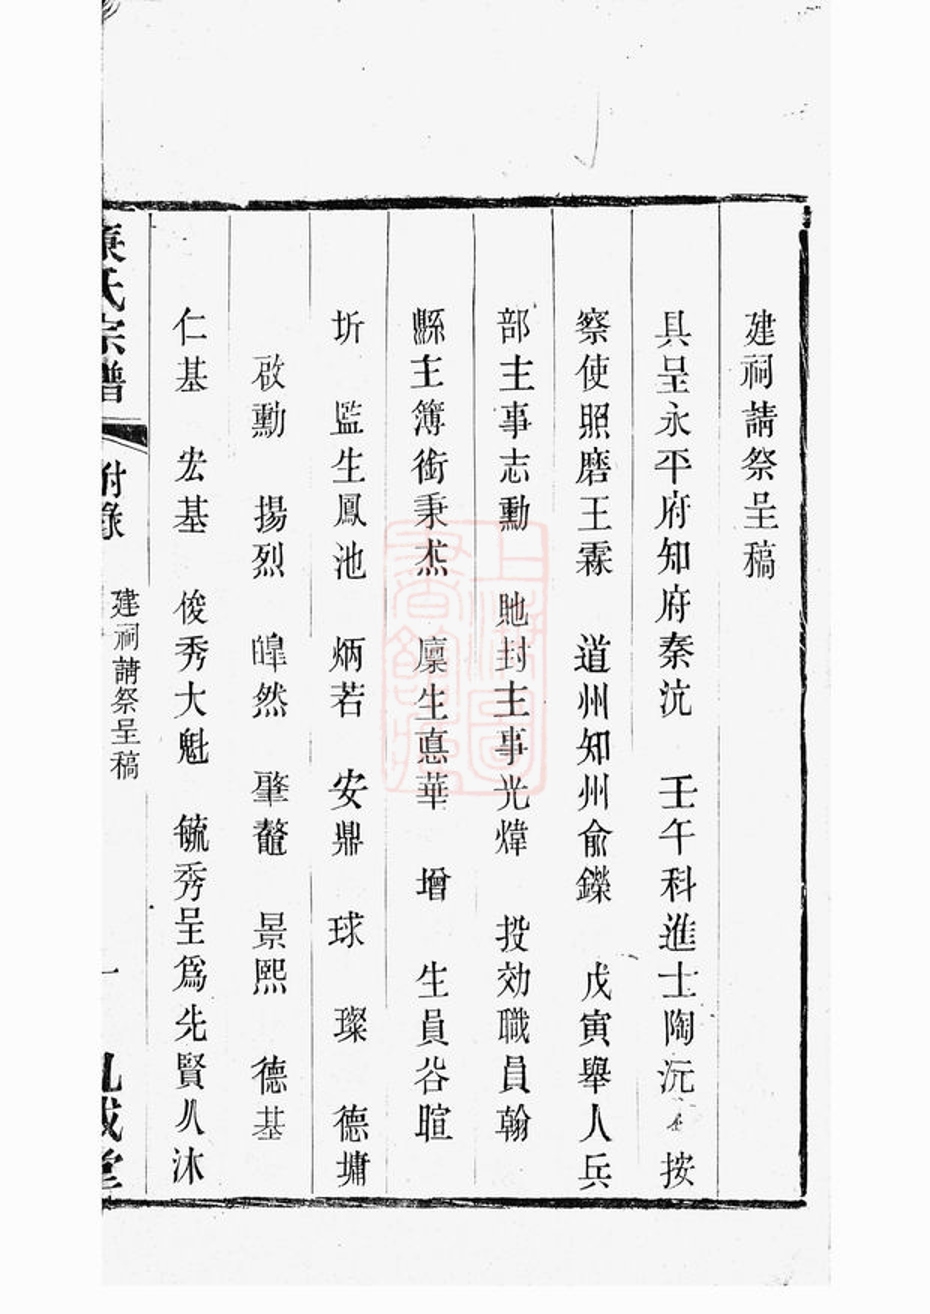 建祠請祭呈稿
具呈永平府知府秦沆 壬午科進士陶沅 按
察使照磨王霖 道州知州俞鑅 戊寅舉人兵
部主事志勳 貤封主事光煒 投効職員翰
縣主簿銜秉烋 廩生惪華 增 生員谷暄
圻 監生鳳池 炳若 安鼎 球 璨 德墉
啟勳 揚烈 皡然 肇鼇 景熙 德基
仁基 宏基 俊秀大魁 毓秀呈爲先賢久沐
氏宗譜
附錄
建祠請祭呈稿
一